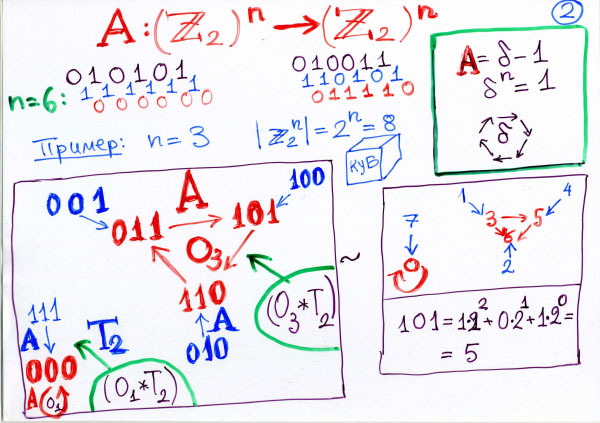 A : (ℤ₂)ⁿ → (ℤ₂)ⁿ
2
n=6:
010101
111111
000000
010011
110101
011110
A = δ - 1
δⁿ = 1
δ
Пример: n = 3
|ℤ₂ⁿ| = 2ⁿ = 8
куб
001
A
100
011 → 101
O₃
110
A
010
(O₃*T₂)
111
A
T₂
000
A O₁
(O₁*T₂)
~
7
0
1
4
3 → 5
6
2
101 = 1·2² + 0·2¹ + 1·2⁰ =
= 5